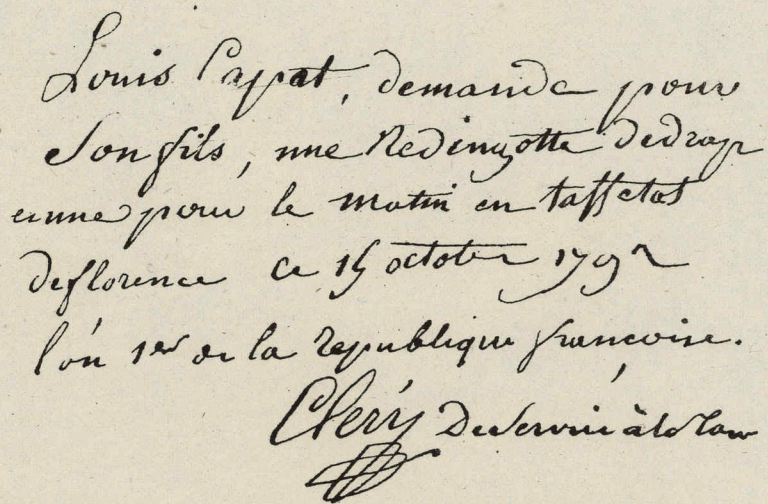 Louis Capat, demande pour
Son fils, une Redingotte de drap
et une pour le matin en taffetas
de florence ce 15 octobre 1792
l'an 1er de la republique francoise.
Cléry De Service à la tour